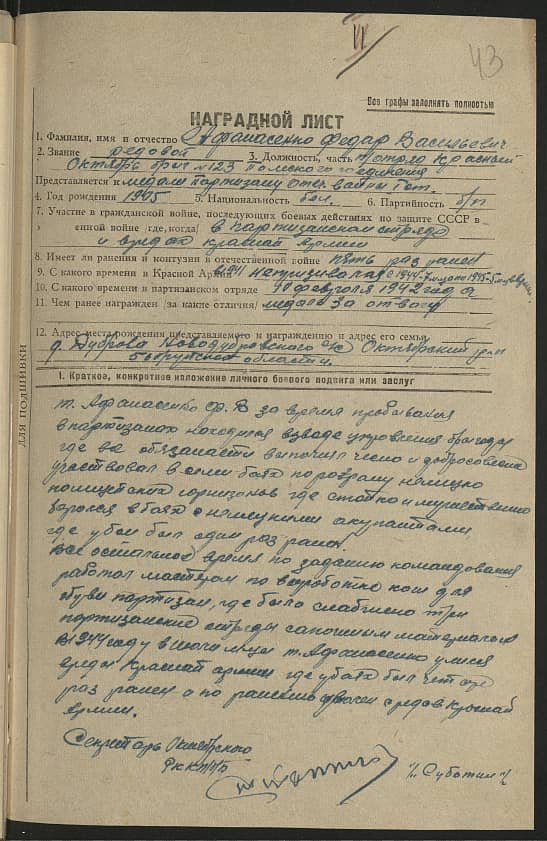 VI
43
Все графы заполнять полностью
НАГРАДНОЙ ЛИСТ
1. Фамилия, имя и отчество Афанасенко Федар Васильевич
2. Звание редовой 3. Должность, часть п/отряд Красный
Октябрь бриг №123 Полесского соединения
Представляется к медале партизану отеч войны I ст.
4. Год рождения 1905 5. Национальность бел. 6. Партийность б/п
7. Участие в гражданской войне, последующих боевых действиях по защите СССР в
енной войне где, когда) в партизанском отряде
и в редах краснай армии
8. Имеет ли ранения и контузии в отечественной войне пять раз ранен
9. С какого времени в Красной Армии
10. С какого времени в партизанском отряде февроля 1942 года
11. Чем ранее награжден /за какие отличия/ медаль за отвогу
12. Адрес места рождения представляемого к награждению и адрес его семьи
д. Дуброва Новодубровского с/с Октябрский р-н
Бобруйской области.
1. Краткое, конкретное изложение личного боевого подвига или заслуг
т. Афанасенко Ф. В за время пребывания
в партизанах находился взводе упровления бригады
где свои обязаности выполнял чесно и добросовесно
участвовал в семи боях по розгрому немецко
полицейских горнизонов где стойко и мужественно
боролся в боях с немецкими акупантами
где у бою был один роз ранен.
Всё остальное время по заданию командования
работал мастером по выроботке кож для
обуви партизан, где было снабжено три
партизанские отряды сапожным материалом
В 1944 году в июне м-це т. Афанасенко
ряды Краснай армии где у боях был четыре
роз ранен а по ранению
армии.
Секретарь Октябрского
РК КП/б/Б
/Суботин/
ДЛЯ ПОДШИВКИ